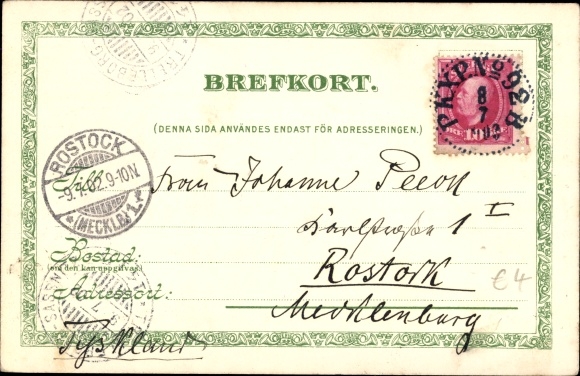 BREFKORT.
(DENNA SIDA ANVÄNDES ENDAST FÖR ADRESSERINGEN.)
PKXP. No 92 B
8
7
ROSTOCK
9.7.02.9-10N.
(MECKLB) 1.
Till
Johanne
Karlstraße 1 I
Bostad:
(om den kan uppgifvas)
Rostock
Adressort:
Mecklenburg
€4
Tyskland